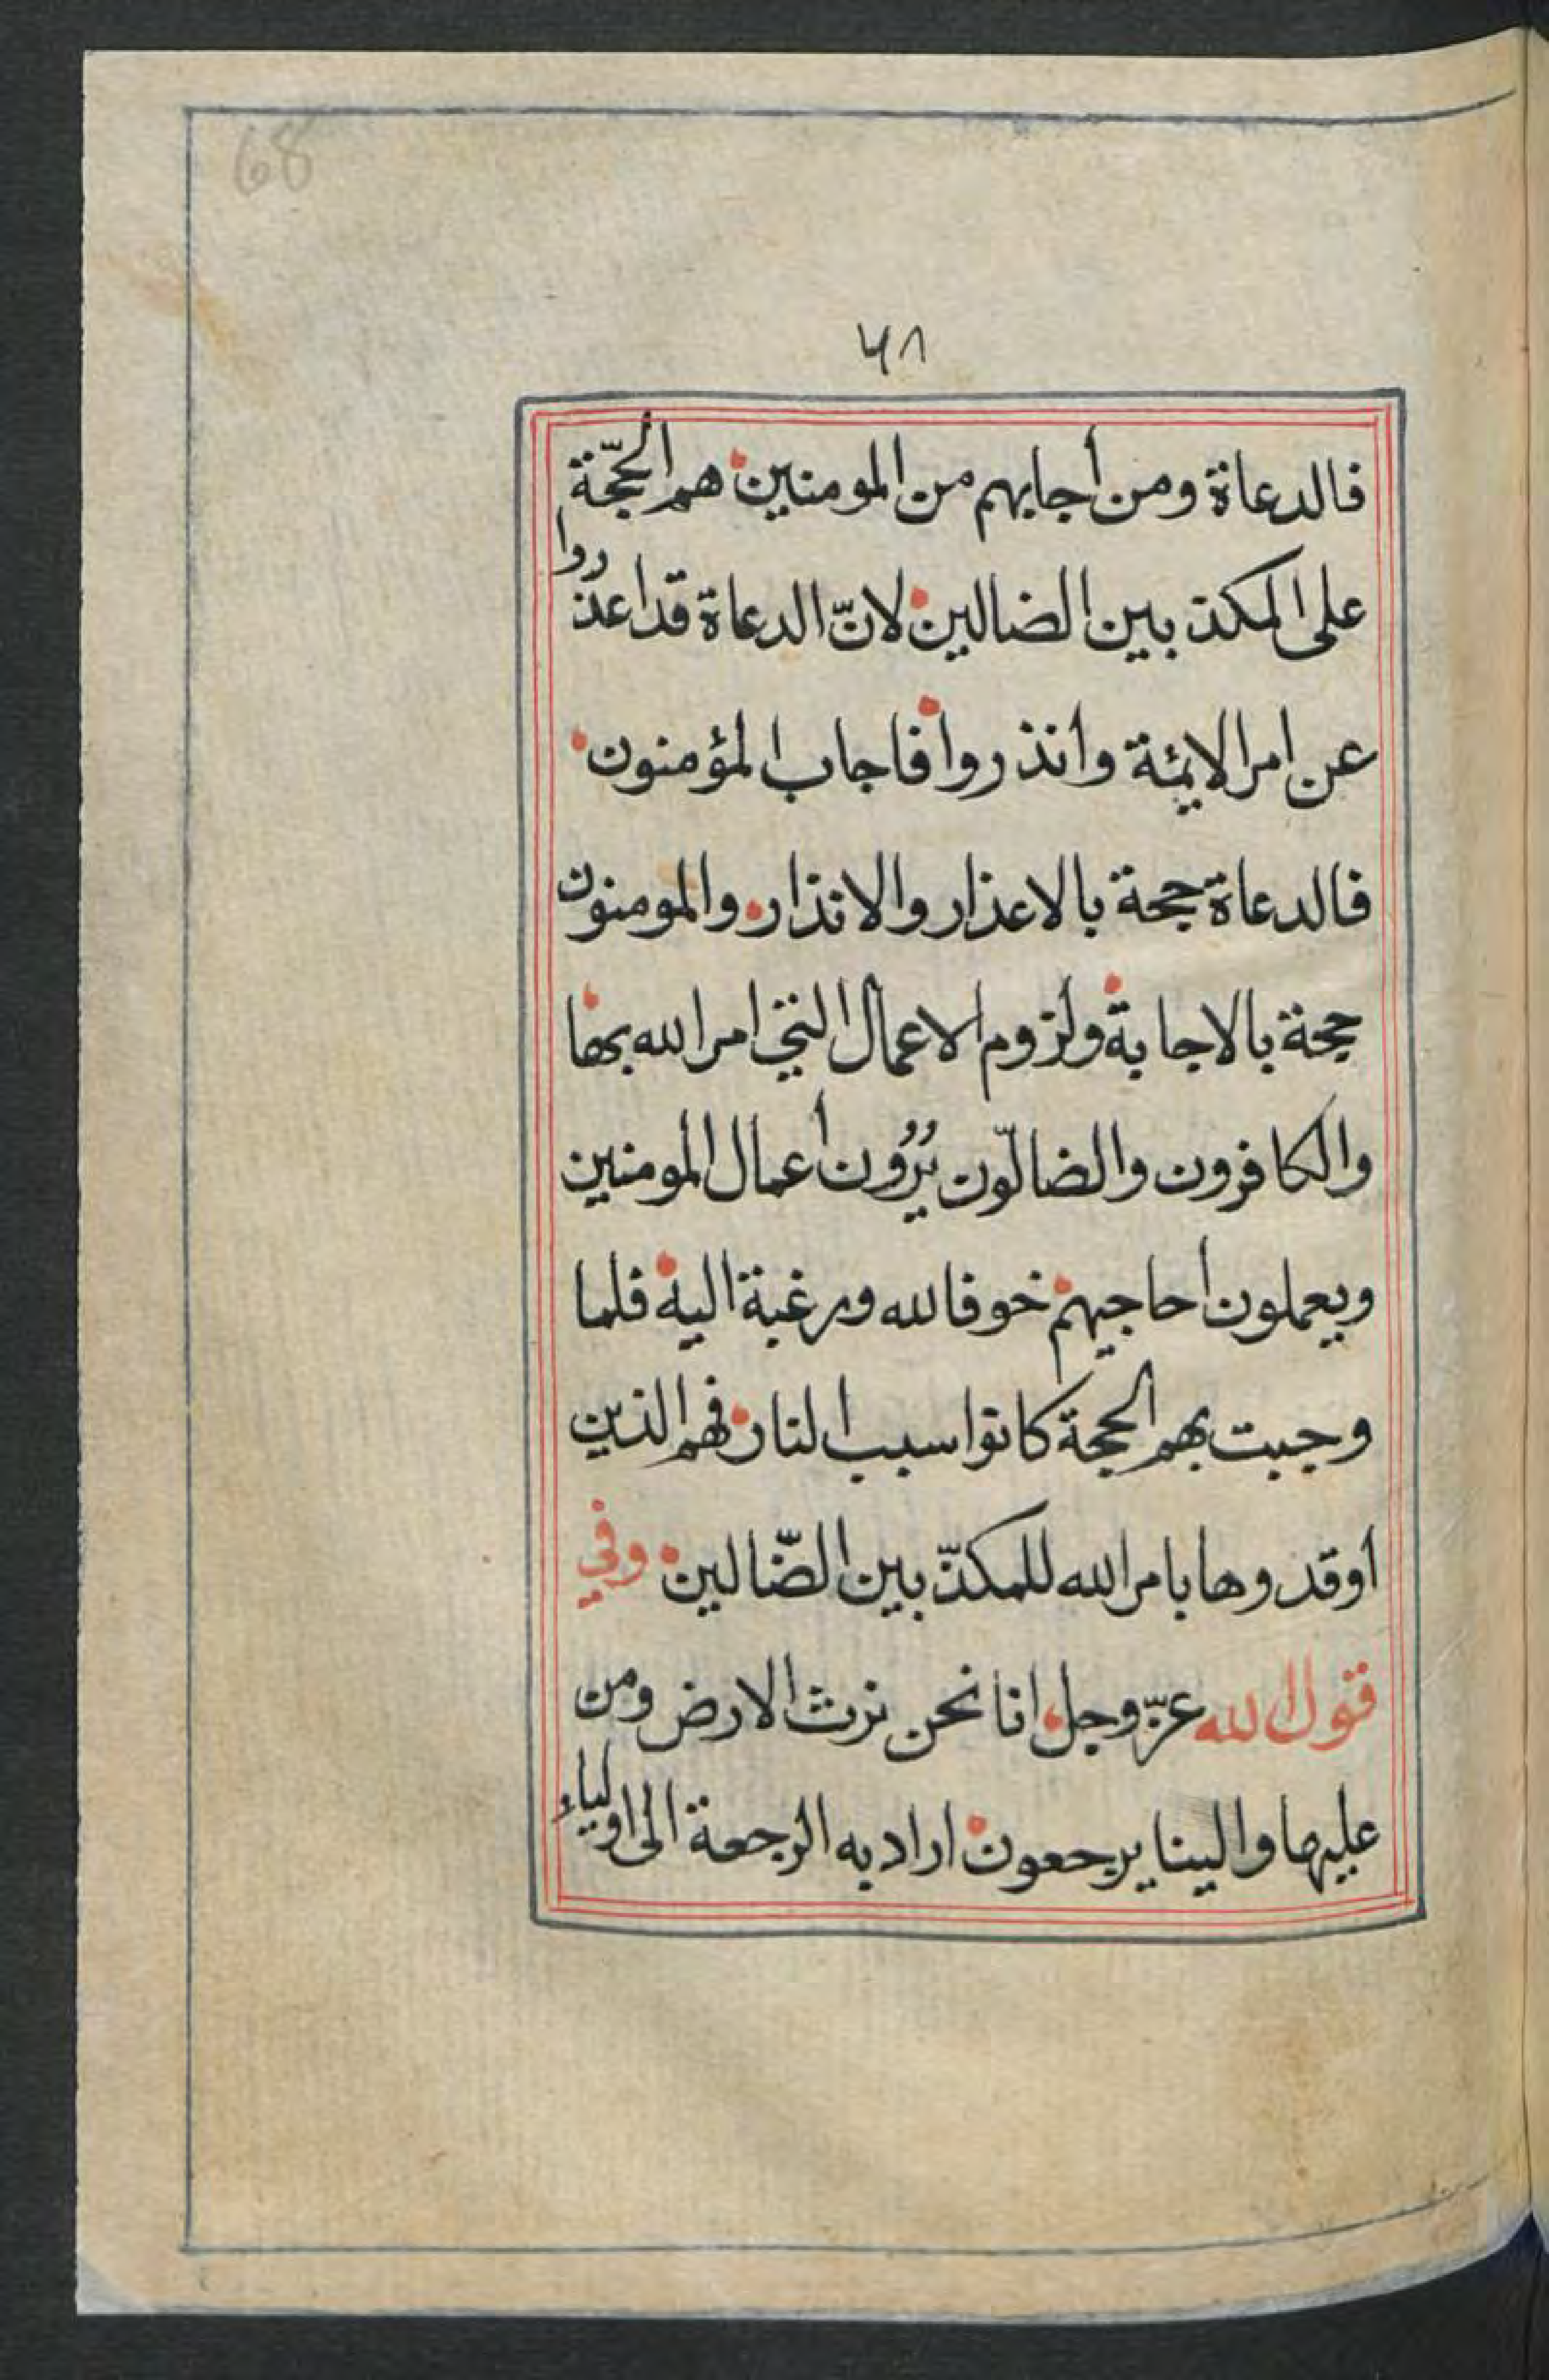 68
٦٨
فالدعاة ومن أجابهم من المومنين هم الحجّة
على المكذبين الضالين لانّ الدعاة قد اعذروا
عن امر الايمّة وانذروا فاجاب المؤمنون
فالدعاة حجة بالاعذار والانذار والمومنون
حجة بالاجابة ولزوم الاعمال التي امر الله بها
والكافرون والضالّون يُرَوُن أعمال المومنين
ويعملون احاجيهم خوفا لله ورغبة اليه فلما
وجبت بهم الحجة كانوا سبب النار فهم الذين
اوقدوها بامر الله للمكذّبين الضّالين وفي
قول الله عزّ وجل انا نحن نرث الارض ومن
عليها والينا يرجعون اراد به الرجعة الى اولياء